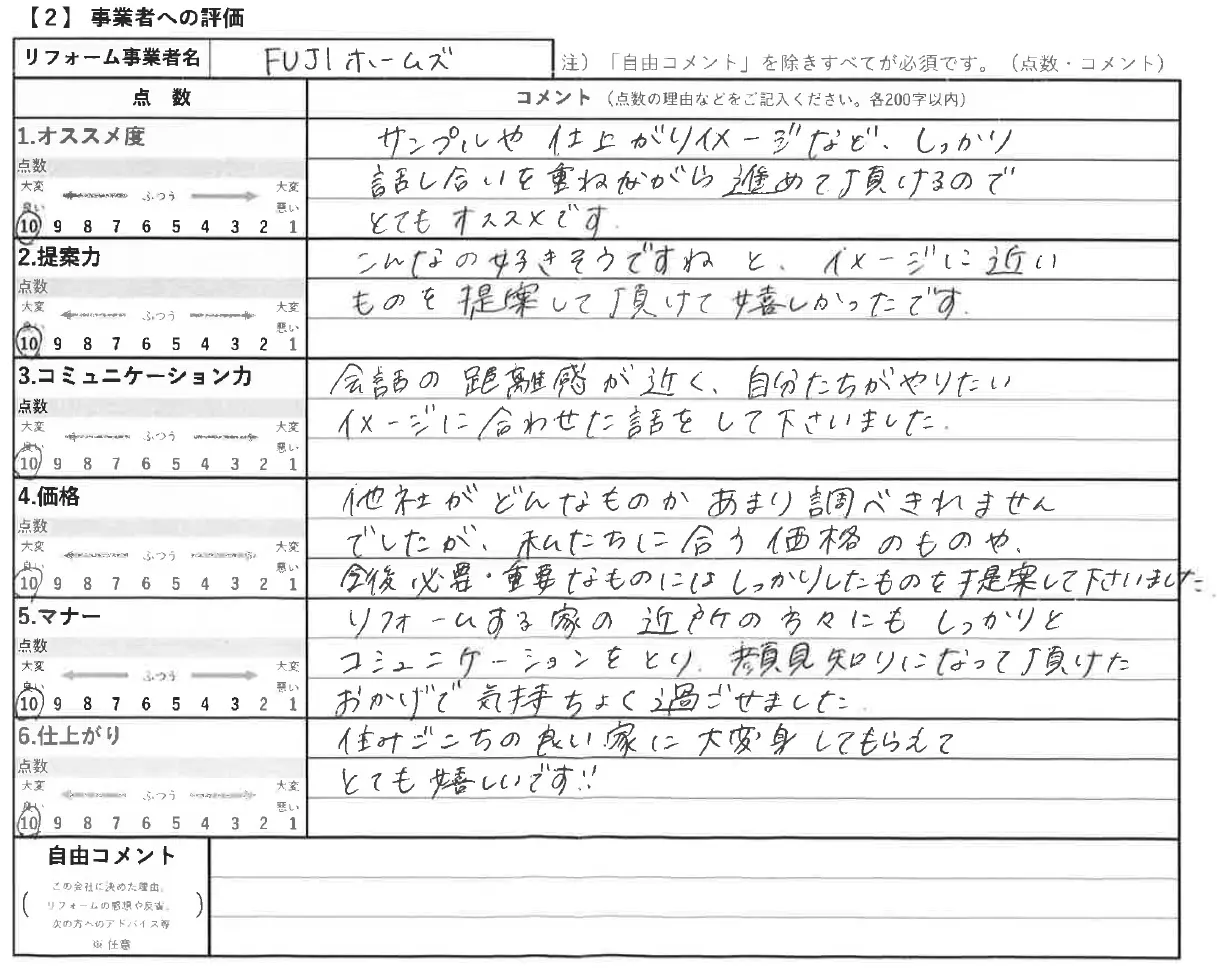 【2】 事業者への評価
リフォーム事業者名 FUJIホームズ 注）「自由コメント」を除きすべてが必須です。（点数・コメント）
点 数 コメント（点数の理由などをご記入ください。各200字以内）
1.オススメ度
点数
大変 ふつう 大変
良い 悪い
10 9 8 7 6 5 4 3 2 1
サンプルや 仕上がりイメージなど、しっかり
話し合いを重ねながら進めて頂けるので
とてもオススメです.
2.提案力
点数
大変 ふつう 大変
良い 悪い
10 9 8 7 6 5 4 3 2 1
こんなの好きそうですねと、イメージに近い
ものを提案して頂けて嬉しかったです.
3.コミュニケーション力
点数
大変 ふつう 大変
良い 悪い
10 9 8 7 6 5 4 3 2 1
会話の距離感が近く、自分たちがやりたい
イメージに合わせた話をして下さいました.
4.価格
点数
大変 ふつう 大変
良い 悪い
10 9 8 7 6 5 4 3 2 1
他社がどんなものかあまり調べきれません
でしたが、私たちに合う価格のものや、
今後必要・重要なものにはしっかりしたものを提案して下さいました.
5.マナー
点数
大変 ふつう 大変
良い 悪い
10 9 8 7 6 5 4 3 2 1
リフォームする家の近所の方々にもしっかりと
コミュニケーションをとり、顔見知りになって頂けた
おかげで気持ちよく過ごせました.
6.仕上がり
点数
大変 ふつう 大変
良い 悪い
10 9 8 7 6 5 4 3 2 1
住みごこちの良い家に大変身してもらえて
とても嬉しいです!!
自由コメント
この会社に決めた理由、
リフォームの感想や反省、
次の方へのアドバイス等
※ 任意